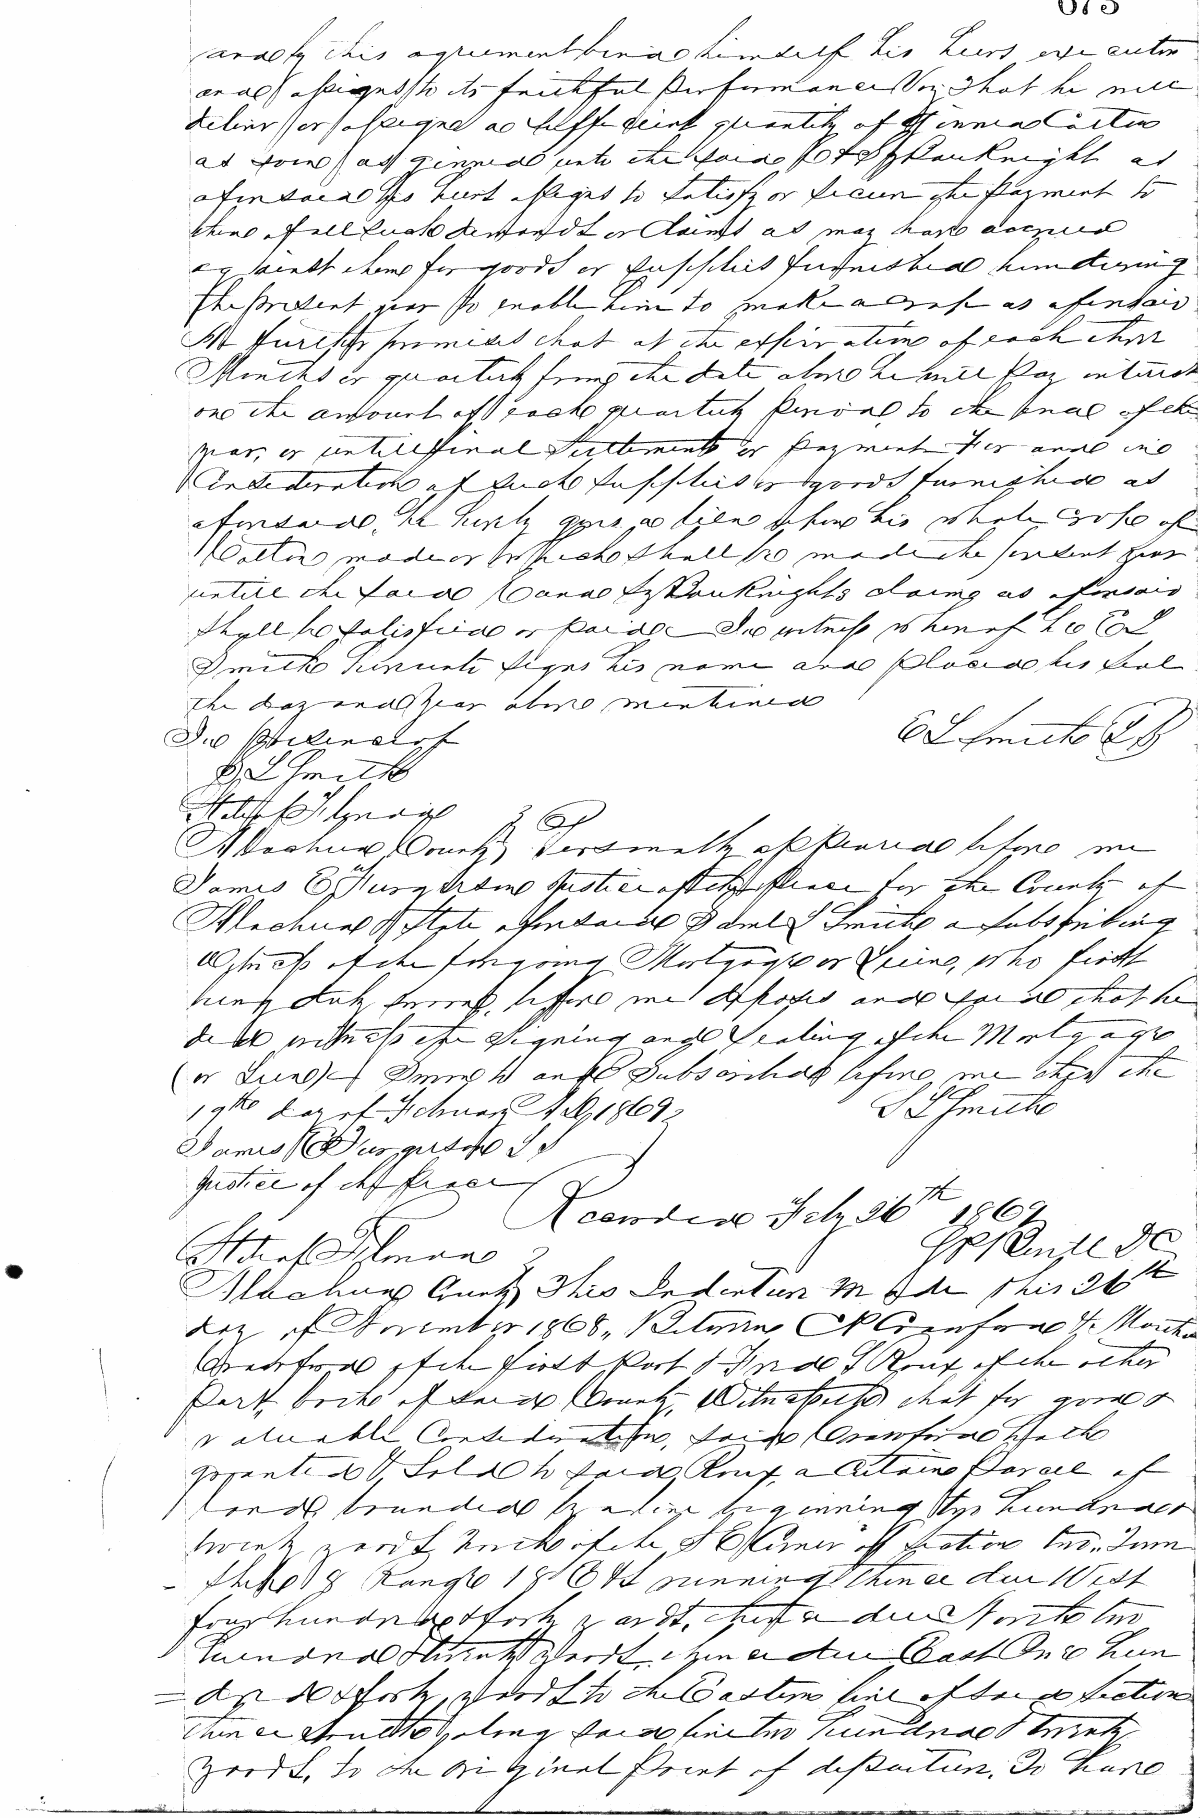 673
and by this agreement bind himself his heirs executors
and assigns to its faithful performance Viz That he will
deliver or assigne a sufficient quantity of Ginned Cotton
as soon as ginned unto the said C & S J Bouknight as
aforesaid his heirs assigns to satisfy or secure the payment to
them of all such demands or Claims as may have accrued
against them for goods or supplies furnished him during
the present year to enable him to make a crop as aforesaid
He further promises that at the expiration of each three
Months or quarterly from the date above he will pay interest
on the amount of each quarterly period, to the end of the
year, or untill final settlement or payment For and in
Consideration of such supplies or goods furnished as
aforesaid, he hereby gives a lien upon his whole crop of
Cotton made or which shall be made the present year
untill the said C and S J Bouknights claims as aforesaid
shall be satisfied or paid In witness whereof he E L
Smith hereunto signs his name and placed his seal
the day and year above mentioned
In presence of E L Smith LS
S L Smith
State of Florida
Alachua County Personally appeared before me
James C Furguson Justice of the Peace for the County of
Alachua & State aforesaid Saml L Smith a Subscribing
Witness of the foregoing Mortgage or Liene, who first
being duly sworn, before me deposes and said that he
did witness the Signing and Sealing of the Mortgage
(or Liene) Sworn to and Subscribed before me this the
19th day of February A D, 1869 S L Smith
James C Furguson
Justice of the Peace
Recorded Feby 26th 1869
State of Florida
Alachua County This Indenture Made this 26th
day of November 1868, Between C Crawford & Martha
Crawford of the first Part & Fred S Roux of the other
Part, both of said County, Witnesseth that for good &
valuable Consideration, said Crawford hath
granted & Sold to said Roux, a Certain Parcel of
land bounded by a line beginning two hundred &
twenty yards North of the S E Corner of Section two, Town
ship 8 Range 18 E & S running thence due West
four hundred & forty yards, thence due North two
hundred & twenty yards, thence due East One hun
=dred & forty yards to the Eastern line of said Section
thence South along said line two hundred & twenty
yards, to the original Point of departure, To have